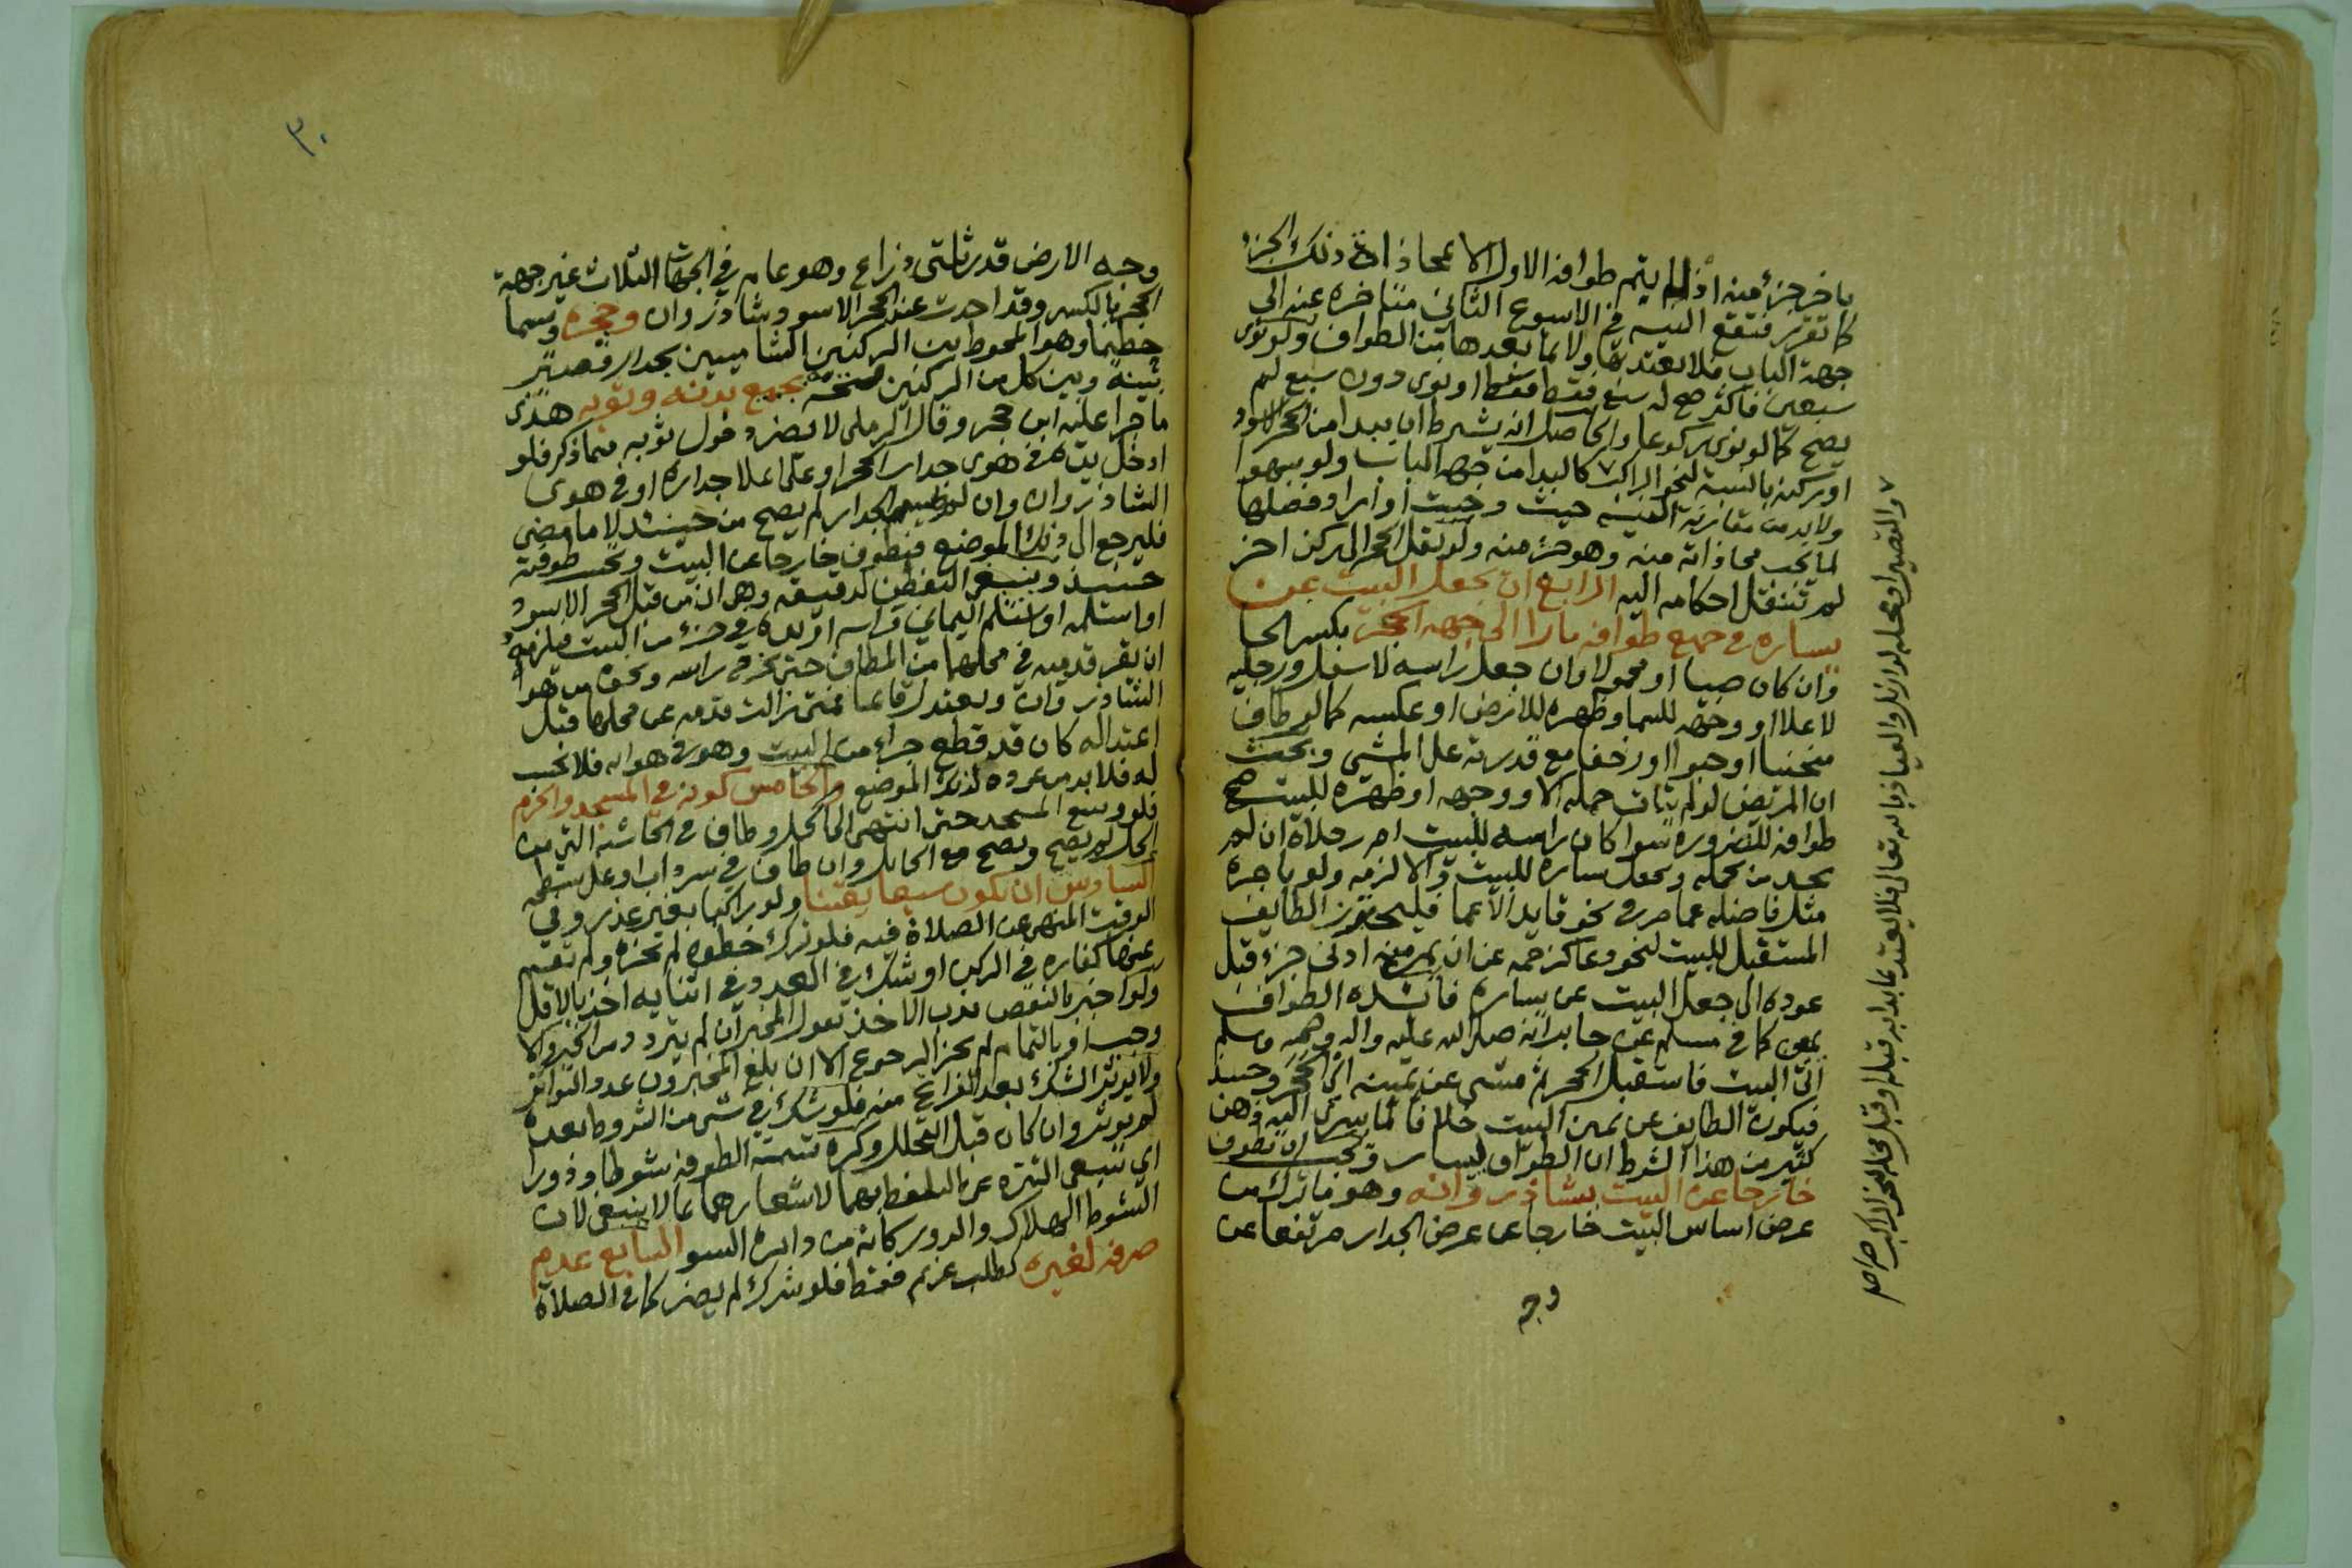 باخر جزء منه اذ لم يتم طوافه الاول الا بمحاذاة ذلك الجزء
كما تقرر فتقع النيه في الاسبوع الثاني متاخره عنه الى
جهة الباب فلا يعتد بها ولا بما بعدها من الطواف ولو نوى
سبعين فاكثر صح له سبع فقط او نوى دون سبع لم
يصح كما لو نوى ركوعا والحاصل انه يشترط ان يبدا من الحجر الاسود
او ركنه بالنسبة لنحو الراكب ٧ كالبدا من جهة الباب ولو سهوا
ولا بد من مقارنة النيه حيث وجبت او اراد فضلها
لما تجب محاذاته منه وهو جزء منه ولو نقل الحجر الى ركن اخر
لم تنتقل احكامه اليه الرابع ان يجعل البيت عن
يساره في جميع طوافه مارا الى جهة الحجر بكسر الحا
وان كان صبيا او محمولا وان جعل راسه لاسفل ورجليه
لاعلا او وجهه للسما وظهره للارض او عكسه كما لو طاف
منحنيا او حبوا او زحفا مع قدرته على المشي وبحث
ان المريض لو لم يتات حمله الا ووجهه او ظهره للبيت صح
طوافه للضروره سوا كان راسه للبيت ام رجلاه ان لم
يجد من يحمله ويجعل يساره للبيت والا لزمه ولو باجرة
مثل فاضله عما مر في نحو قايد الاعما فليحترز الطايف
المستقبل للبيت لنحو دعا كزحمه عن ان يمر منه ادنى جزء قبل
عوده الى جعل البيت عن يساره الطواف
كما في مسلم عن جابر انه صلى الله عليه واله وصحبه وسلم
اتى البيت فاستقبل الحجر ثم مشى عن يمينه اي الحجر وحينيذ
فيكون الطايف عن يمين البيت خلافا لما يسرى اليه وهن
كثير من هذا الشرط ان الطواف يسار ويجب ان يطوف
خارجا عن البيت بشاذروانه وهو ما ترك من
عرض اساس البيت خارجا عن عرض الجدار مرتفعا عن
وجه
وجه الارض قدر ثلثى ذراع وهو عام في الجهات الثلاث غير جهة
الحجر بالكسر وقد احدث عند الحجر الاسود شاذروان وحجره ويسما
حطيما وهو المحوط بين الركنين الشاميين بجدار قصير
بينه وبين كل من الركنين فتحة بجميع بدنه وثوبه هذى
ما جرا عليه ابن حجر وقال الرملي لا يضر دخول ثوبه فيما ذكر فلو
ادخل يده في هوى جدار الحجر او على اعلا جداره او في هوى
الشاذروان وان لم يمس الجدار لم يصح من حينيذ لا ما مضى
فليرجع الى ذلك الموضع فيطوف خارجا عن البيت وتحسب طوفته
حينيذ وينبغي التفطن لدقيقه وهي ان من قبل الحجر الاسود
او استلمه او يستلم اليماني فراسه او يده في جزء من البيت فيلزمه
ان يقر قدميه في محلهما من المطاف حتى يخرج راسه ونحوه من هوا
الشاذروان ويعتدل قايما فمتى زالت قدمه عن محلها قبل
اعتداله كان قد قطع جزاء من البيت وهو في هوايه فلا تحسب
له فلا بد من عوده لذلك الموضع والخامس كونه في المسجد والحرم
فلو وسع المسجد حتى انتهى الى الحل وطاف في الحاشيه التي من
الحل لم يصح ويصح مع الحايل وان طاف في سرداب او على سطحه
السادس ان يكون سبعا يقينا ولو راكبا بغير عذر وفي
الوقت المنهي عن الصلاة فيه فلو ترك خطوه لم تجزه ولم تقم
عنها كفاره في الركن او شك في العدد وفي اثنايه اخذ بالاقل
ولو اخبر بالنقص ندب الاخذ بقول المخبر ان لم يتردد من الخبر والا
وجب او بالتمام لم يجز الرجوع الا ان بلغ المخبرون عدد التواتر
ولا يوثر الشك بعد الفراغ منه فلو شك في شي من الشروط بعده
لم يوثر وان كان قبل التحلل وكره تسمية الطوفه شوطا ودورا
اي ينبغي التنزه عن التلفظ بهما لاشعارهما بما لا ينبغي لان
الشوط الهلاك والدور كانه من دايره السو السابع عدم
صرفه لغيره كطلب غريم فقط فلو شرك لم يضر كما في الصلاة
٣٠